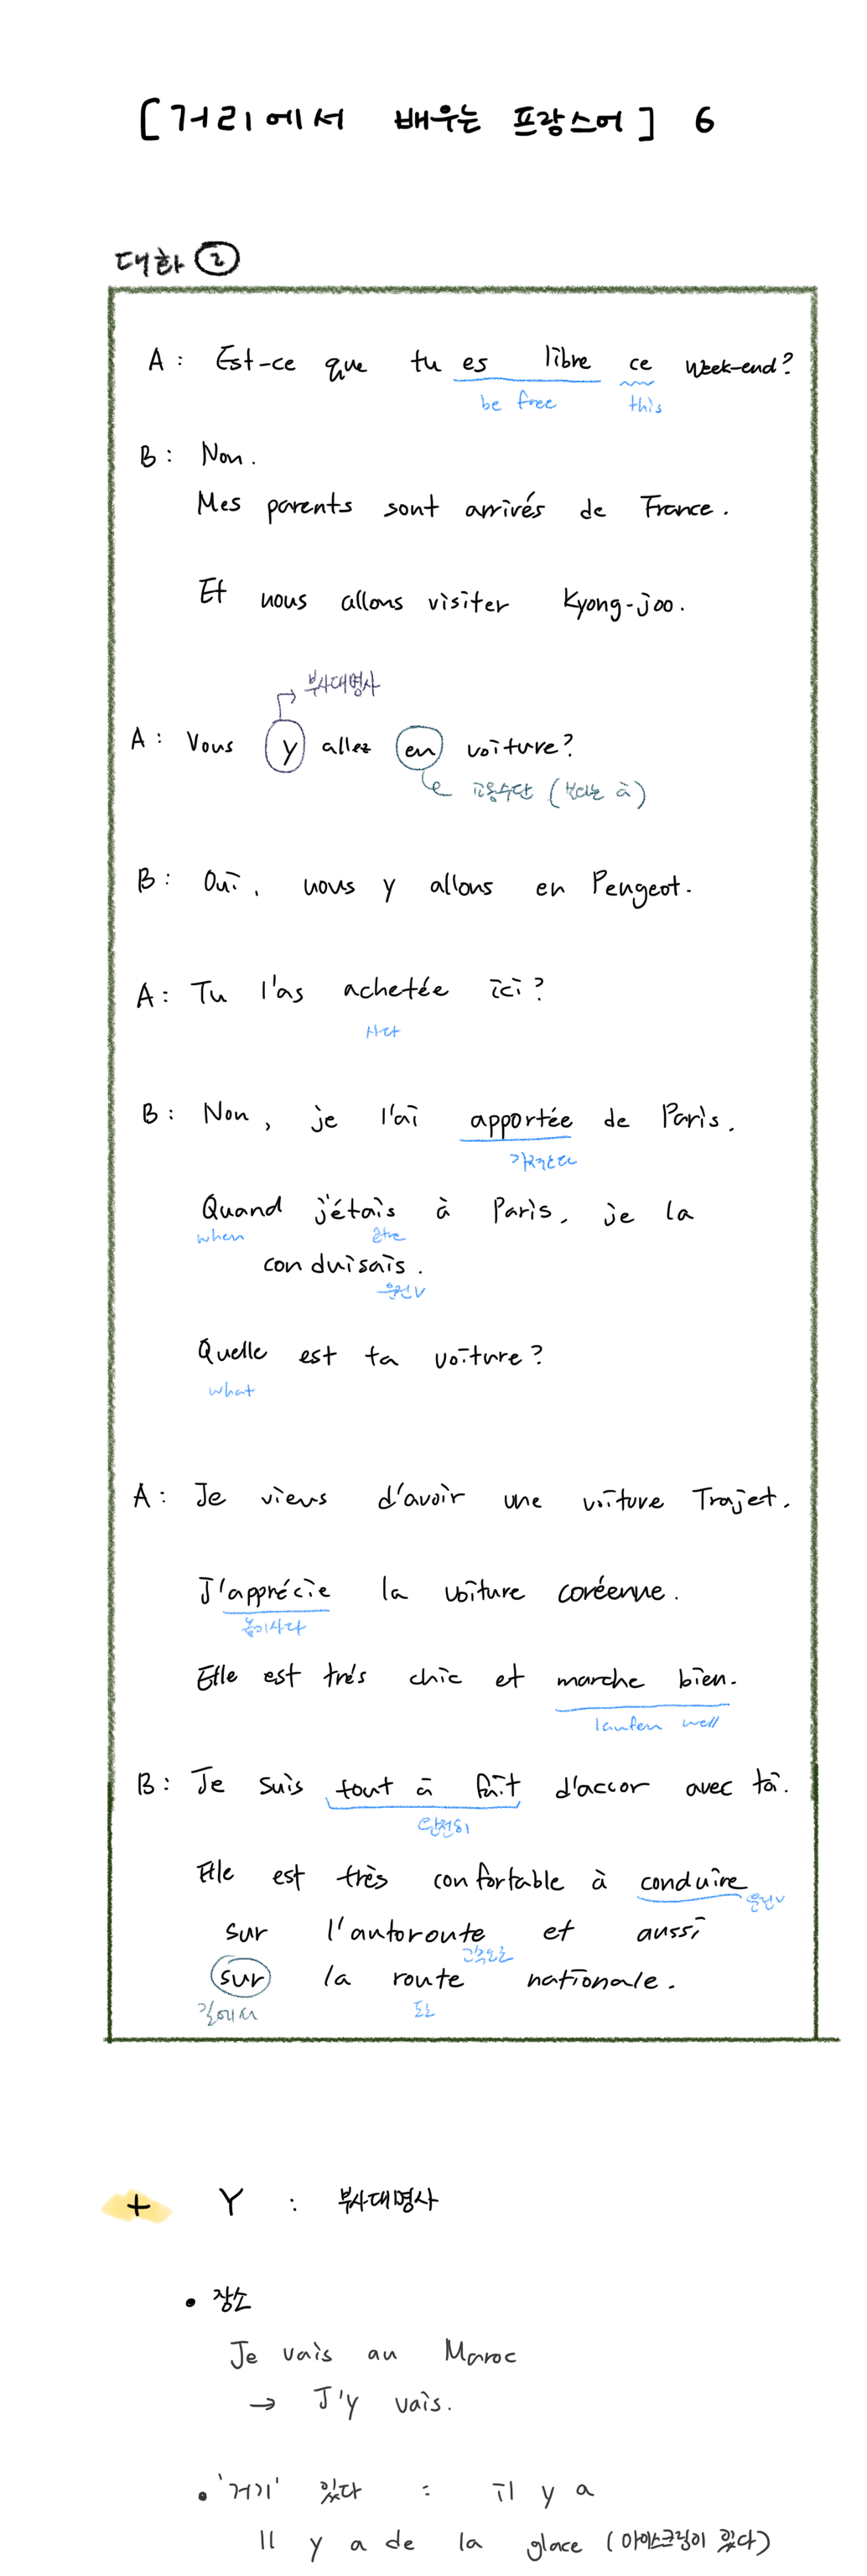 [거리에서 배우는 프랑스어] 6
대화 ②
A : Est-ce que tu es libre ce week-end?
be free this
B : Non.
Mes parents sont arrivés de France.
Et nous allons visiter Kyong-joo.
부사대명사
A : Vous y allez en voiture?
교통수단 (보다는 à)
B : Oui, nous y allons en Peugeot.
A : Tu l'as achetée ici?
사다
B : Non, je l'ai apportée de Paris.
가져오다
Quand j'étais à Paris, je la
when être
conduisais.
운전V
Quelle est ta voiture?
what
A : Je viens d'avoir une voiture Trajet.
J'apprécie la voiture coréenne.
높이사다
Elle est trés chic et marche bien.
laufen well
B : Je suis tout à fait d'accor avec toi.
완전히
Elle est très confortable à conduire
운전V
sur l'autoroute et aussi
고속도로
sur la route nationale.
길에서 도로
+ Y : 부사대명사
• 장소
Je vais au Maroc
→ J'y vais.
• '거기' 있다 : il y a
Il y a de la glace (아이스크림이 있다)